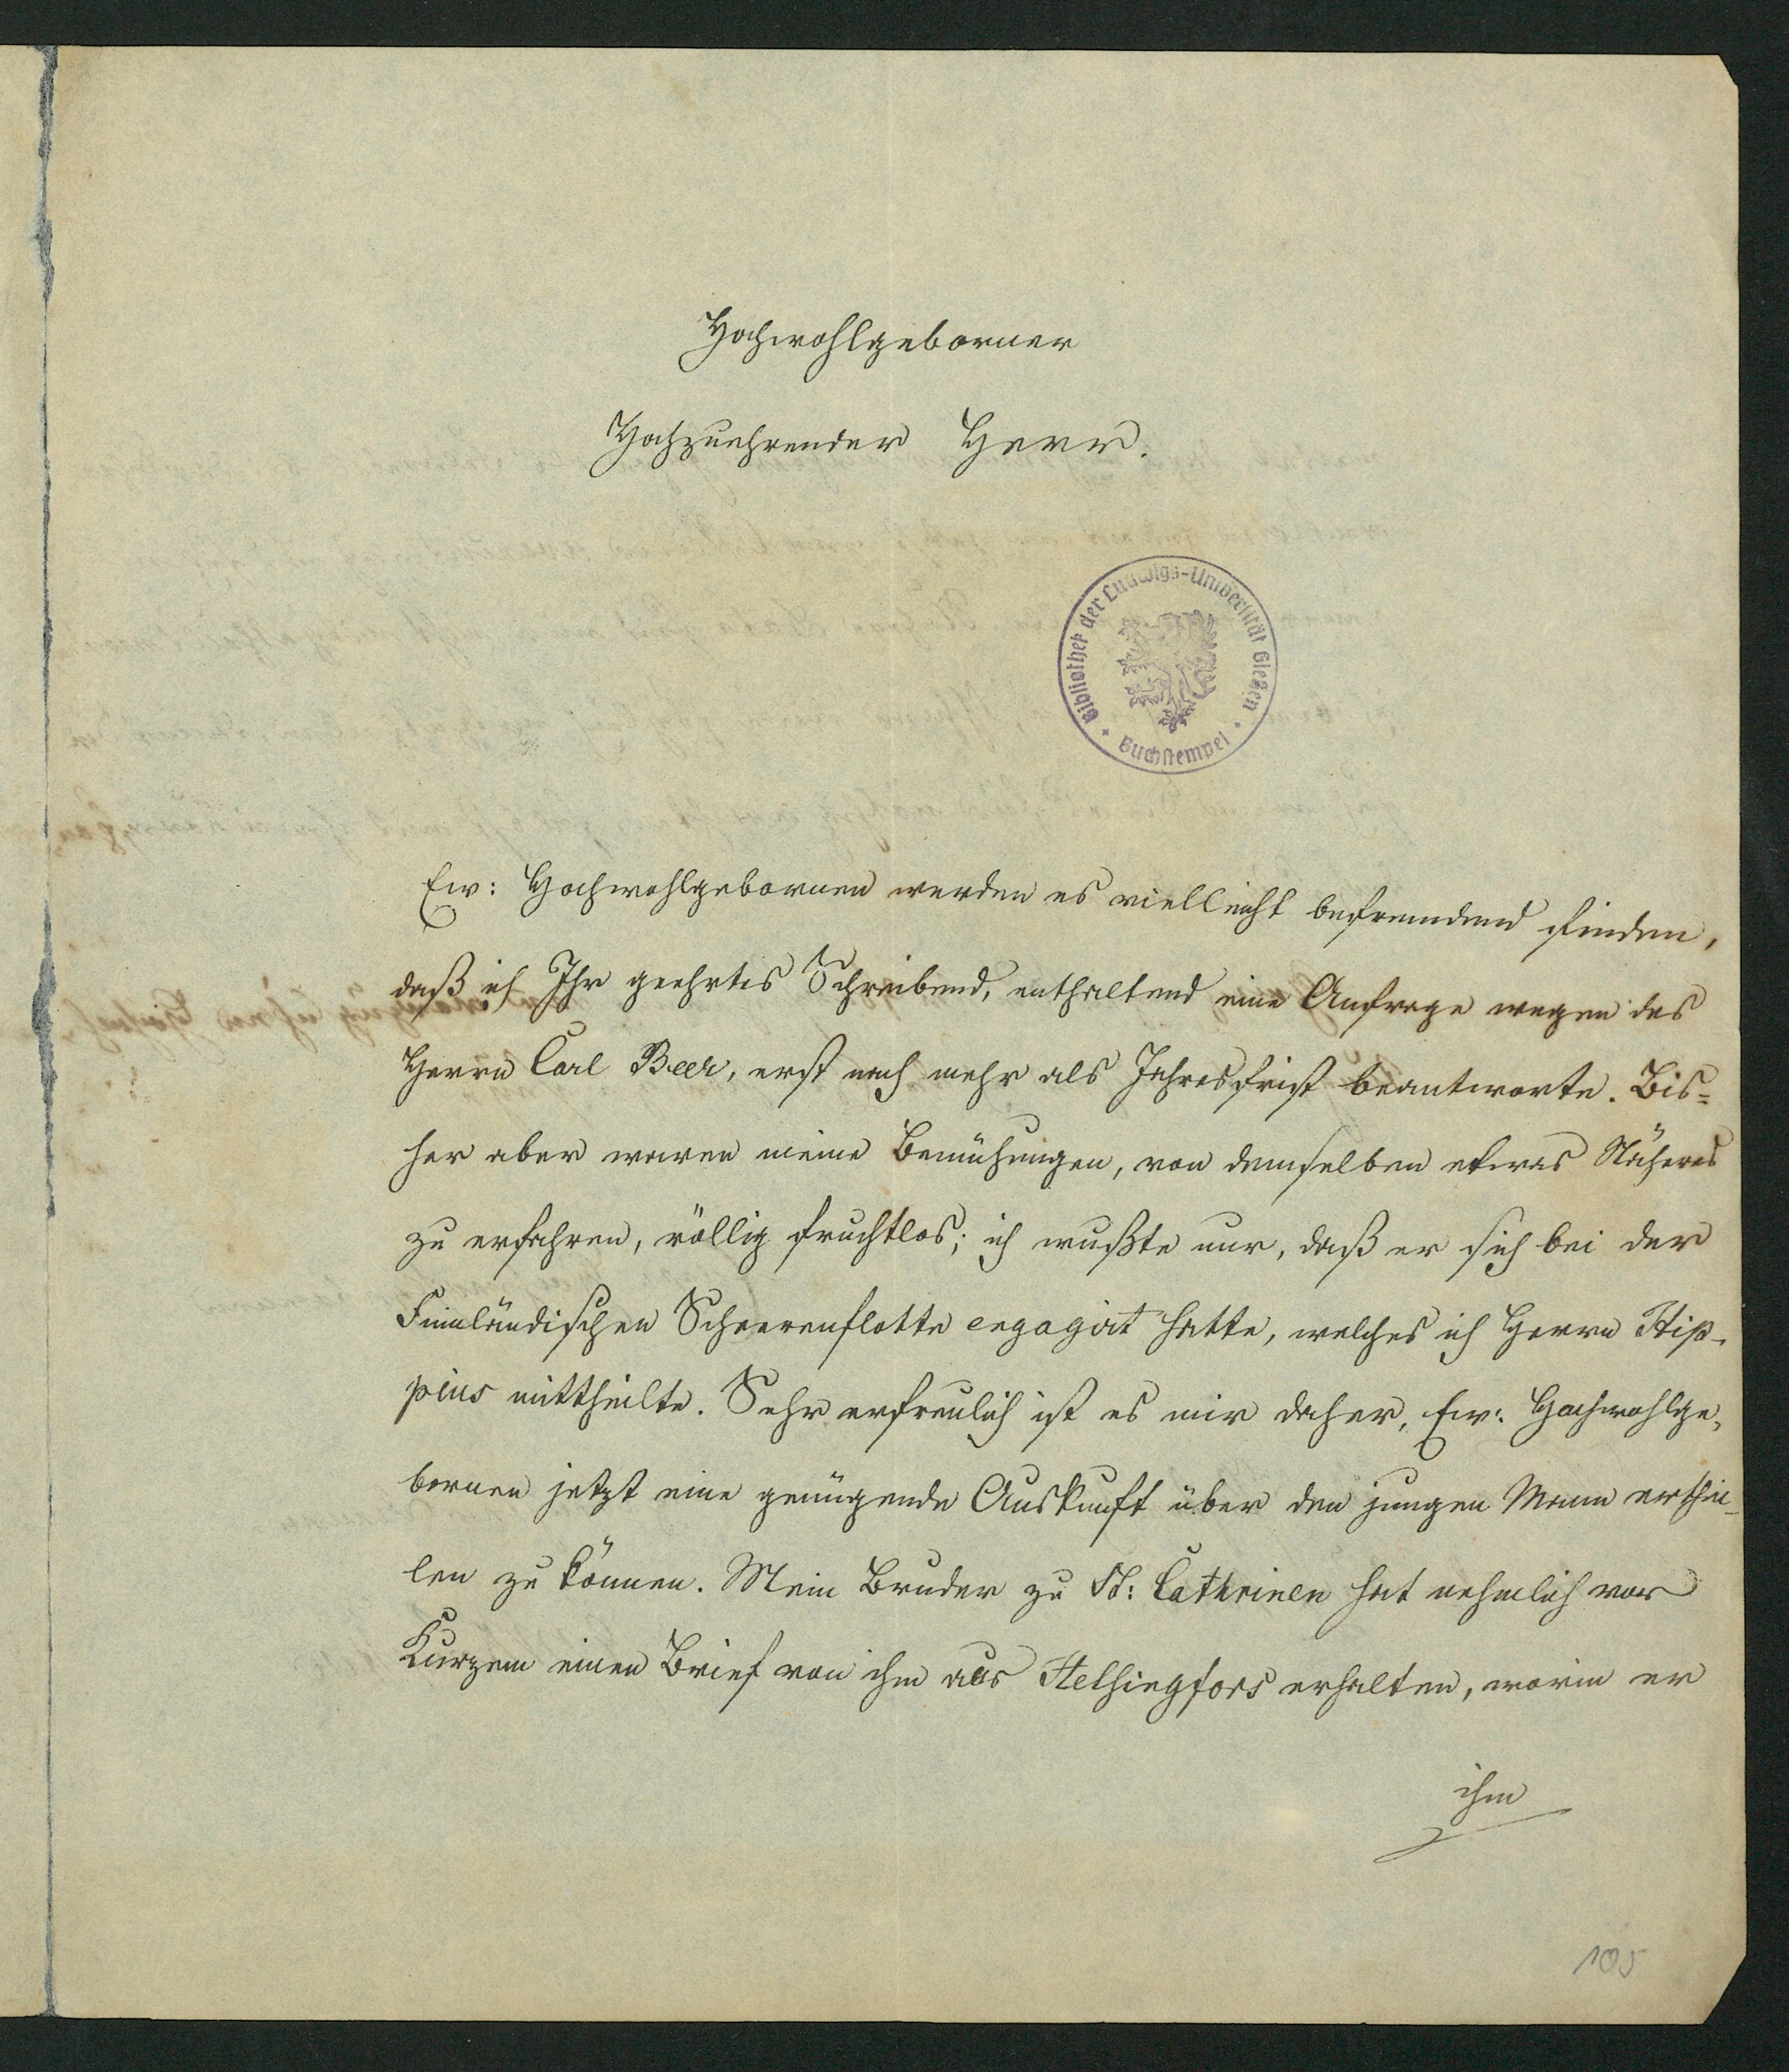 Hochwohlgeborner
Hochzuehrender Herr.
Bibliothek der Ludwigs-Universität Gießen
Buchstempel
Ew: Hochwohlgebornen werden es vielleicht befremdend finden,
daß ich Ihr geehrtes Schreibend, enthaltend eine Anfrage wegen des
Herrn Carl Beer, erst nach mehr als Jahresfrist beantworte. Bis=
her aber waren meine Bemühungen, von demselben etwas Näheres
zu erfahren, völlig fruchtlos; ich wußte nur, daß er sich bei der
Finnländischen Scheerenflotte engagirt hatte, welches ich Herrn Hip-
pius mittheilte. Sehr erfreulich ist es mir daher, Ew: Hochwohlge-
bornen jetzt eine genügende Auskunft über den jungen Mann erthei-
len zu können. Mein Bruder zu St: Cathrinen hat nehmlich vor
Kurzem einen Brief von ihm aus Helsingfors erhalten, worin er
ihm
105